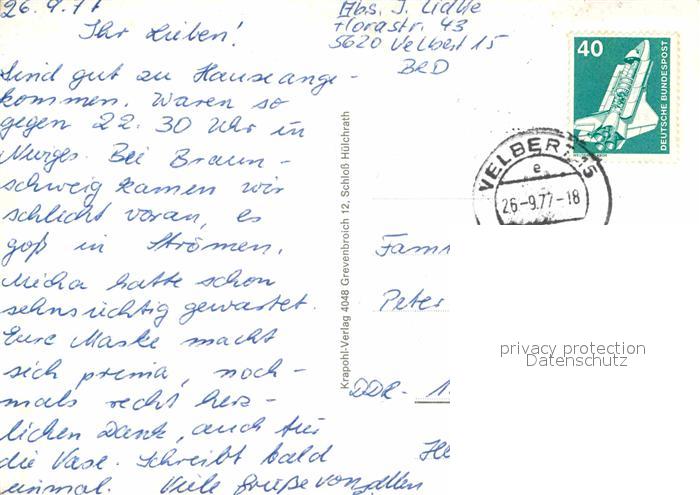 26.9.77
Ihr Lieben!
Sind gut zu Hause ange-
kommen. Waren so
gegen 22.30 Uhr in
Bei Braun-
schweig kamen wir
schlecht voran, es
goß in Strömen.
Micha hatte schon
sehnsüchtig gewartet.
Eure Maske macht
sich prima, noch-
mals recht herz-
lichen Dank, auch für
die Vase. Schreibt bald
einmal. Viele Grüße von allen
Abs. J. Lidtke
Florastr. 43
5620 Velbert 15
BRD
40
DEUTSCHE BUNDESPOST
VELBERT 15
e
26.-9.77-18
Krapohl-Verlag 4048 Grevenbroich 12, Schloß Hülchrath
Fam
Peter
DDR-
privacy protection
Datenschutz